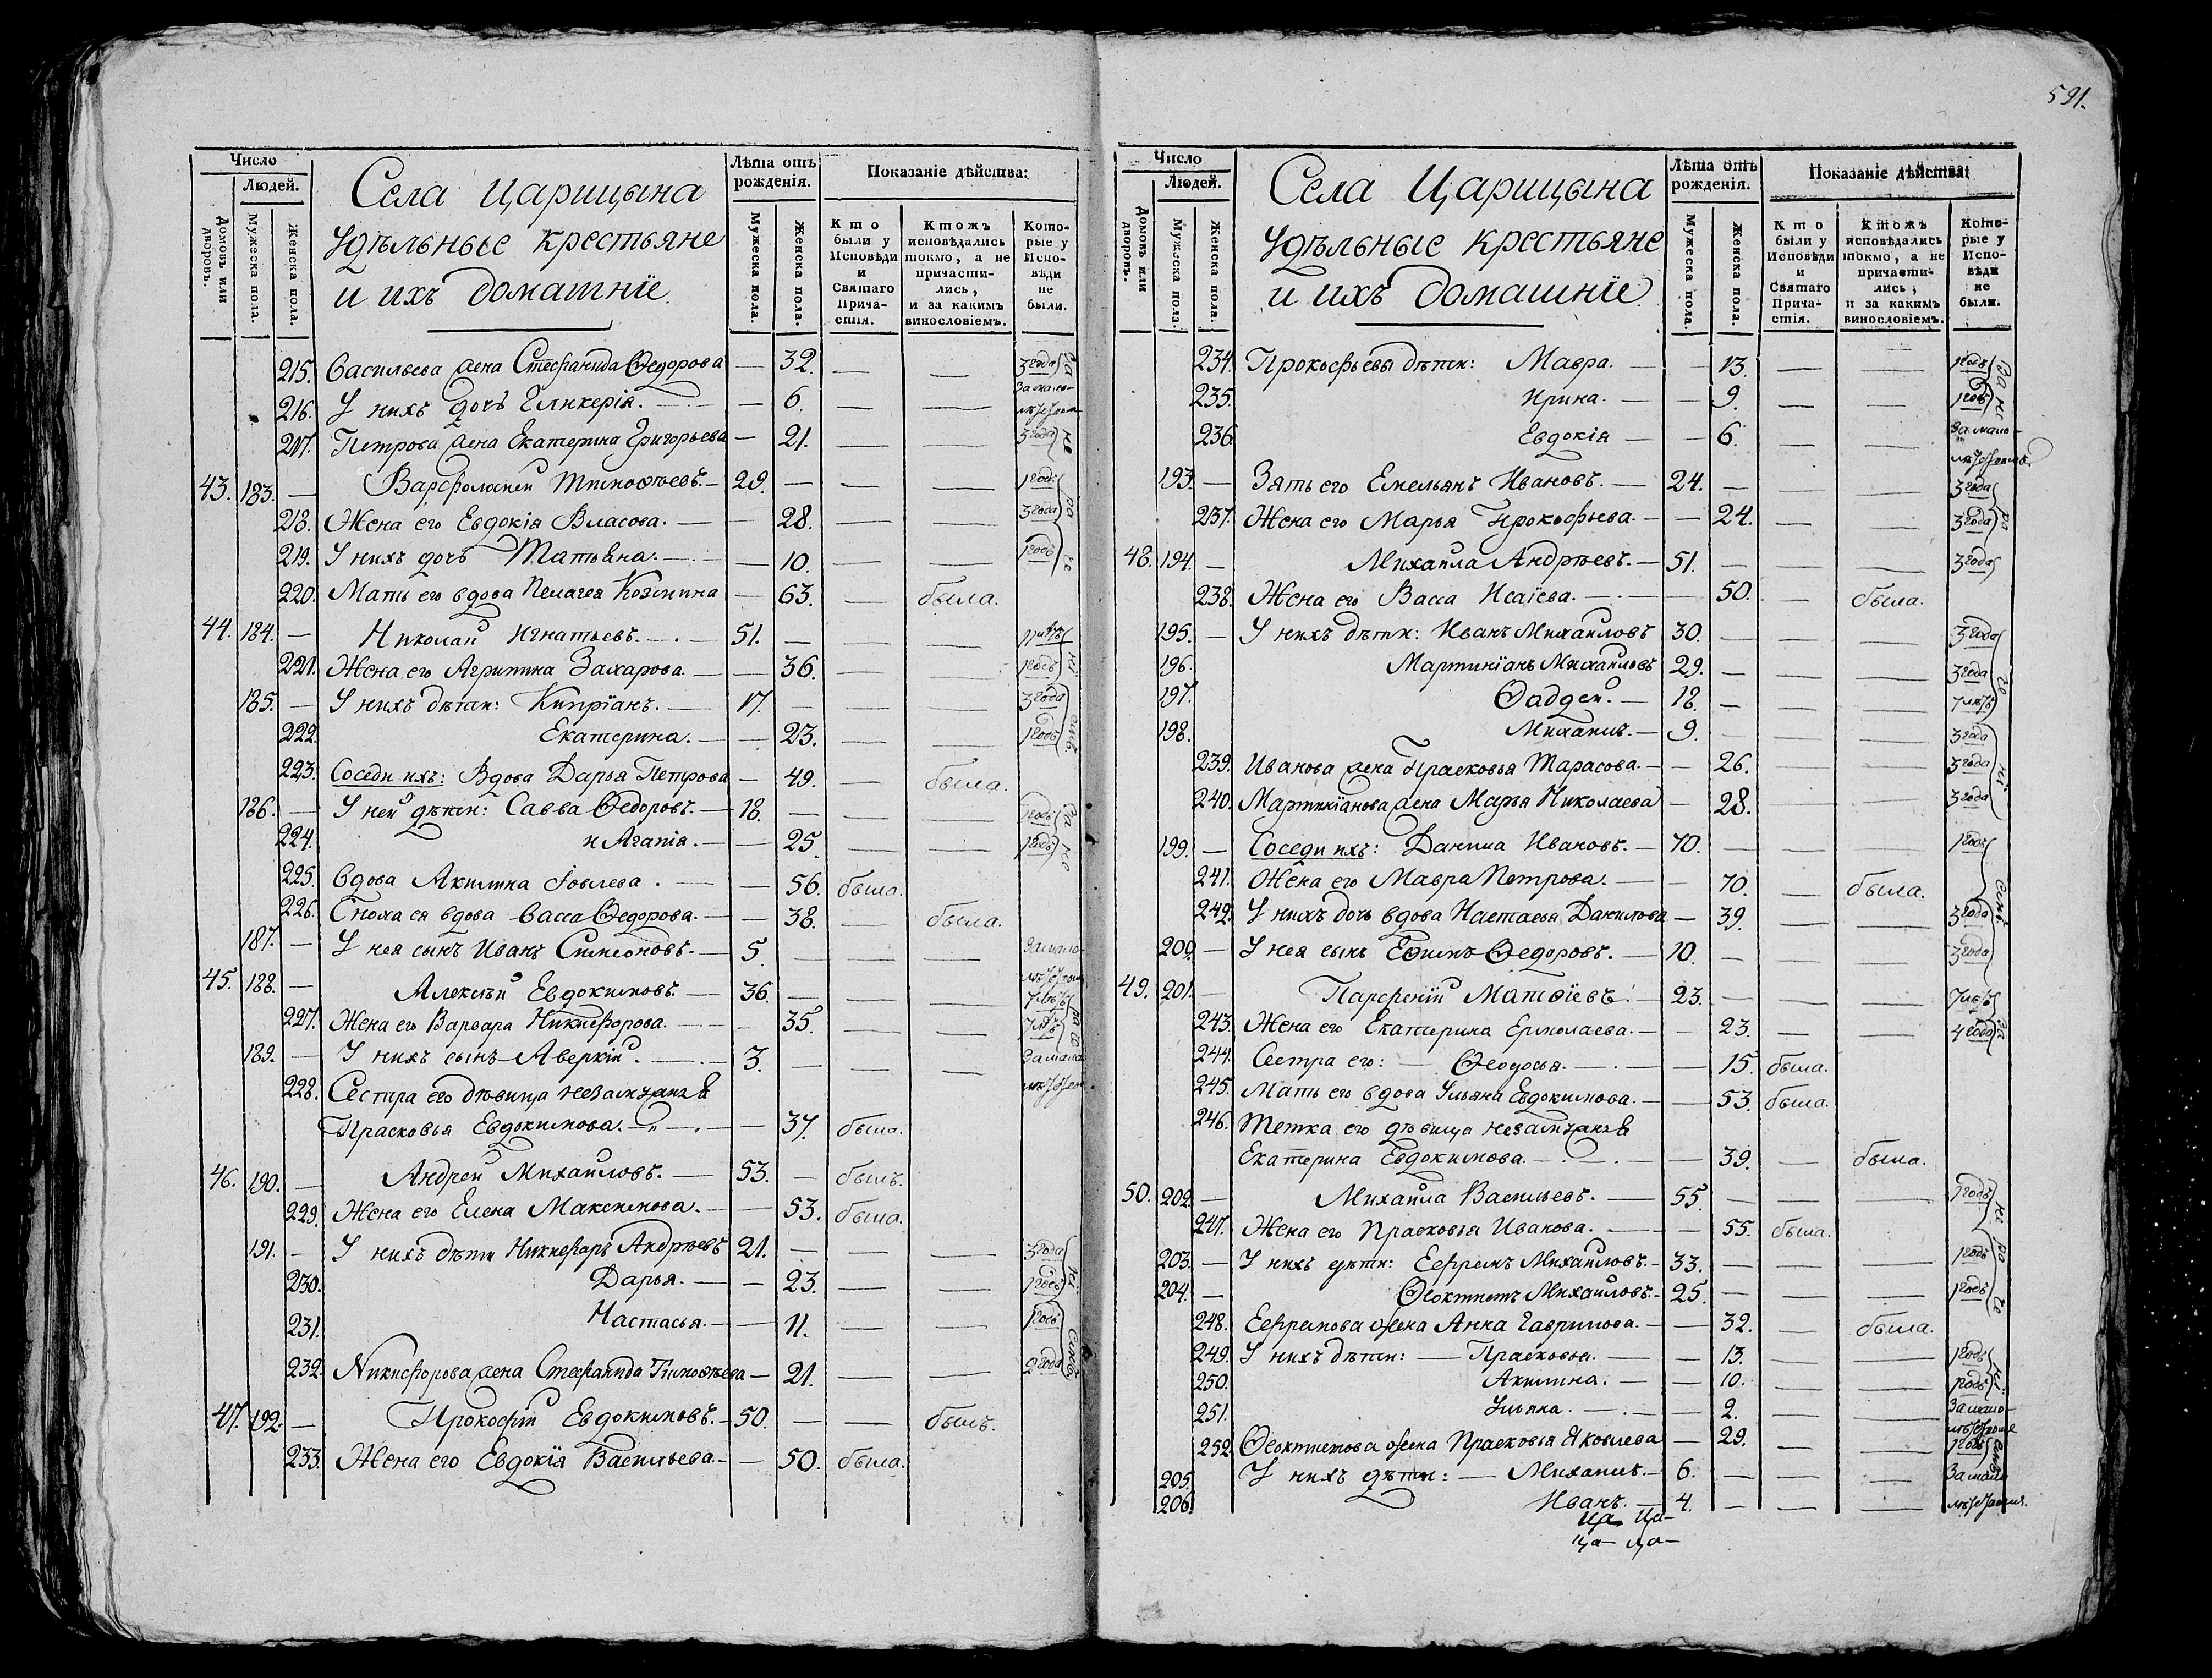 591.
Число
Людей.
Домовъ или дворовъ.
Мужеска пола.
Женска пола.
Села Царицына
Удѣльные крестьяне
и ихъ домашніе.
Лѣта отъ рожденія.
Мужеска пола.
Женска пола.
Показаніе дѣйства:
Кто были у Исповѣди и Святаго Причастія.
Ктожъ исповѣдались токмо, а не причастились, и за какимъ винословіемъ.
Которые у Исповѣди не были.
215. Васильева жена Стефанида Ѳедорова — 32. — — 3 года
216. У нихъ дочь Гликерія. — 6. — — За мало-
217. Петрова жена Екатерина Григорьева — 21. — — 3 года
43. 183. — Варфоломей Тимоѳеевъ. — 29. — — — 1 годъ
218. Жена его Евдокія Власова. — 28. — — 3 года
219. У нихъ дочь Татьяна. — 10. — — 1 годъ
220. Мать его вдова Пелагея Козмина — 63. — была.
44. 184. — Николай Игнатьевъ. — 51. — — —
221. Жена его Агрипина Захарова. — 36. — — 1 годъ
185. — У нихъ дѣти: Кипріанъ. — 17. — — — 3 года
222. Екатерина. — 23. — — 1 годъ
223. Соседи ихъ: Вдова Дарья Петрова — 49. — была.
186. — У ней дѣти: Савва Ѳедоровъ. — 18. — — — 1 годъ
224. и Агапія. — 25. — — 1 годъ
225. Вдова Акилина Іовлева. — 56. была.
226. Сноха ея вдова Васса Ѳедорова. — 38. — была.
187. — У нея сынъ Иванъ Симеоновъ. — 5. — — — За мало-
45. 188. — Алексѣй Евдокимовъ. — 36. — — — 7 лѣтъ
227. Жена его Варвара Никифорова. — 35. — — 7 лѣтъ
189. — У нихъ сынъ Аверкій. — 3. — — — За мало-
228. Сестра его дѣвица незамужняя
Прасковья Евдокимова. — 37. была.
46. 190. — Андрей Михайловъ. — 53. — былъ.
229. Жена его Елена Максимова. — 53. была.
191. — У нихъ дѣти Никифоръ Андрѣевъ 21. — — — 3 года
230. Дарья. — 23. — — 1 годъ
231. Настасья. — 11. — — 1 годъ
232. Никифорова жена Стефанида Тимоѳѣева — 21. — — 2 года
47. 192. — Прокофій Евдокимовъ. — 50. — — былъ.
233. Жена его Евдокія Васильева. — 50. была.
Число
Людей.
Домовъ или дворовъ.
Мужеска пола.
Женска пола.
Села Царицына
Удѣльные крестьяне
и ихъ домашніе
Лѣта отъ рожденія.
Мужеска пола.
Женска пола.
Показаніе дѣйства:
Кто были у Исповѣди и Святаго Причастія.
Ктожъ исповѣдались токмо, а не причастились, и за какимъ винословіемъ.
Которые у Исповѣди не были.
234. Прокофьевы дѣти: Мавра. — 13. — — 1 годъ
235. Ирина. — 9. — — 1 годъ
236. Евдокія — 6. — — За мало-
193. — Зять его Емельянъ Ивановъ. — 24. — — — 3 года
237. Жена его Марья Прокофьева. — 24. — — 3 года
48. 194. — Михайла Андрѣевъ. — 51. — — — 3 года
238. Жена его Васса Исаіева. — 50. — была.
195. — У нихъ дѣти: Иванъ Михайловъ 30. — — — 3 года
196. Мартиніанъ Михайловъ 29. — — — 3 года
197. Ѳадѣей. — 18. — — — 7 лѣтъ
198. Михаилъ. — 9. — — — 3 года
239. Иванова жена Прасковья Тарасова. — 26. — — 3 года
240. Мартиніанова жена Марья Николаева — 28. — — 3 года
199. — Соседи ихъ: Данила Ивановъ. — 70. — — — 1 годъ
241. Жена его Мавра Петрова. — 70. — была.
242. У нихъ дочь вдова Настасья Данилова — 39. — — 3 года
200. — У нея сынъ Ефимъ Ѳедоровъ. — 10. — — — 3 года
49. 201. — Парфеній Матѳіевъ. — 23. — — — 7 лѣтъ
243. Жена его Екатерина Ермолаева. — 23. — — 4 года
244. Сестра его: — Ѳеодосья. — 15. была.
245. Мать его вдова Ульяна Евдокимова. — 53. была.
246. Тетка его дѣвица незамужняя
Екатерина Евдокимова. — 39. — была.
50. 202. — Михайла Васильевъ. — 55. — — — 1 годъ
247. Жена его Прасковья Иванова. — 55. была.
203. — У нихъ дѣти: Ефремъ Михайловъ. — 33. — — — 1 годъ
204. — Ѳеоктистъ Михайловъ. — 25. — — — 1 годъ
248. Ефремова жена Анна Гаврилова. — 32. — была.
249. У нихъ дѣти: — Прасковья. — 13. — — 1 годъ
250. Акилина. — 10. — — 1 годъ
251. Ульяна. — 2. — — За мало-
252. Ѳеоктистова жена Прасковья Яковлева — 29. — — 1 годъ
205. У нихъ дѣти: — Михаилъ. — 6. — — — За мало
206. Иванъ. — 4. — — —
ца ца-
ца- ца-